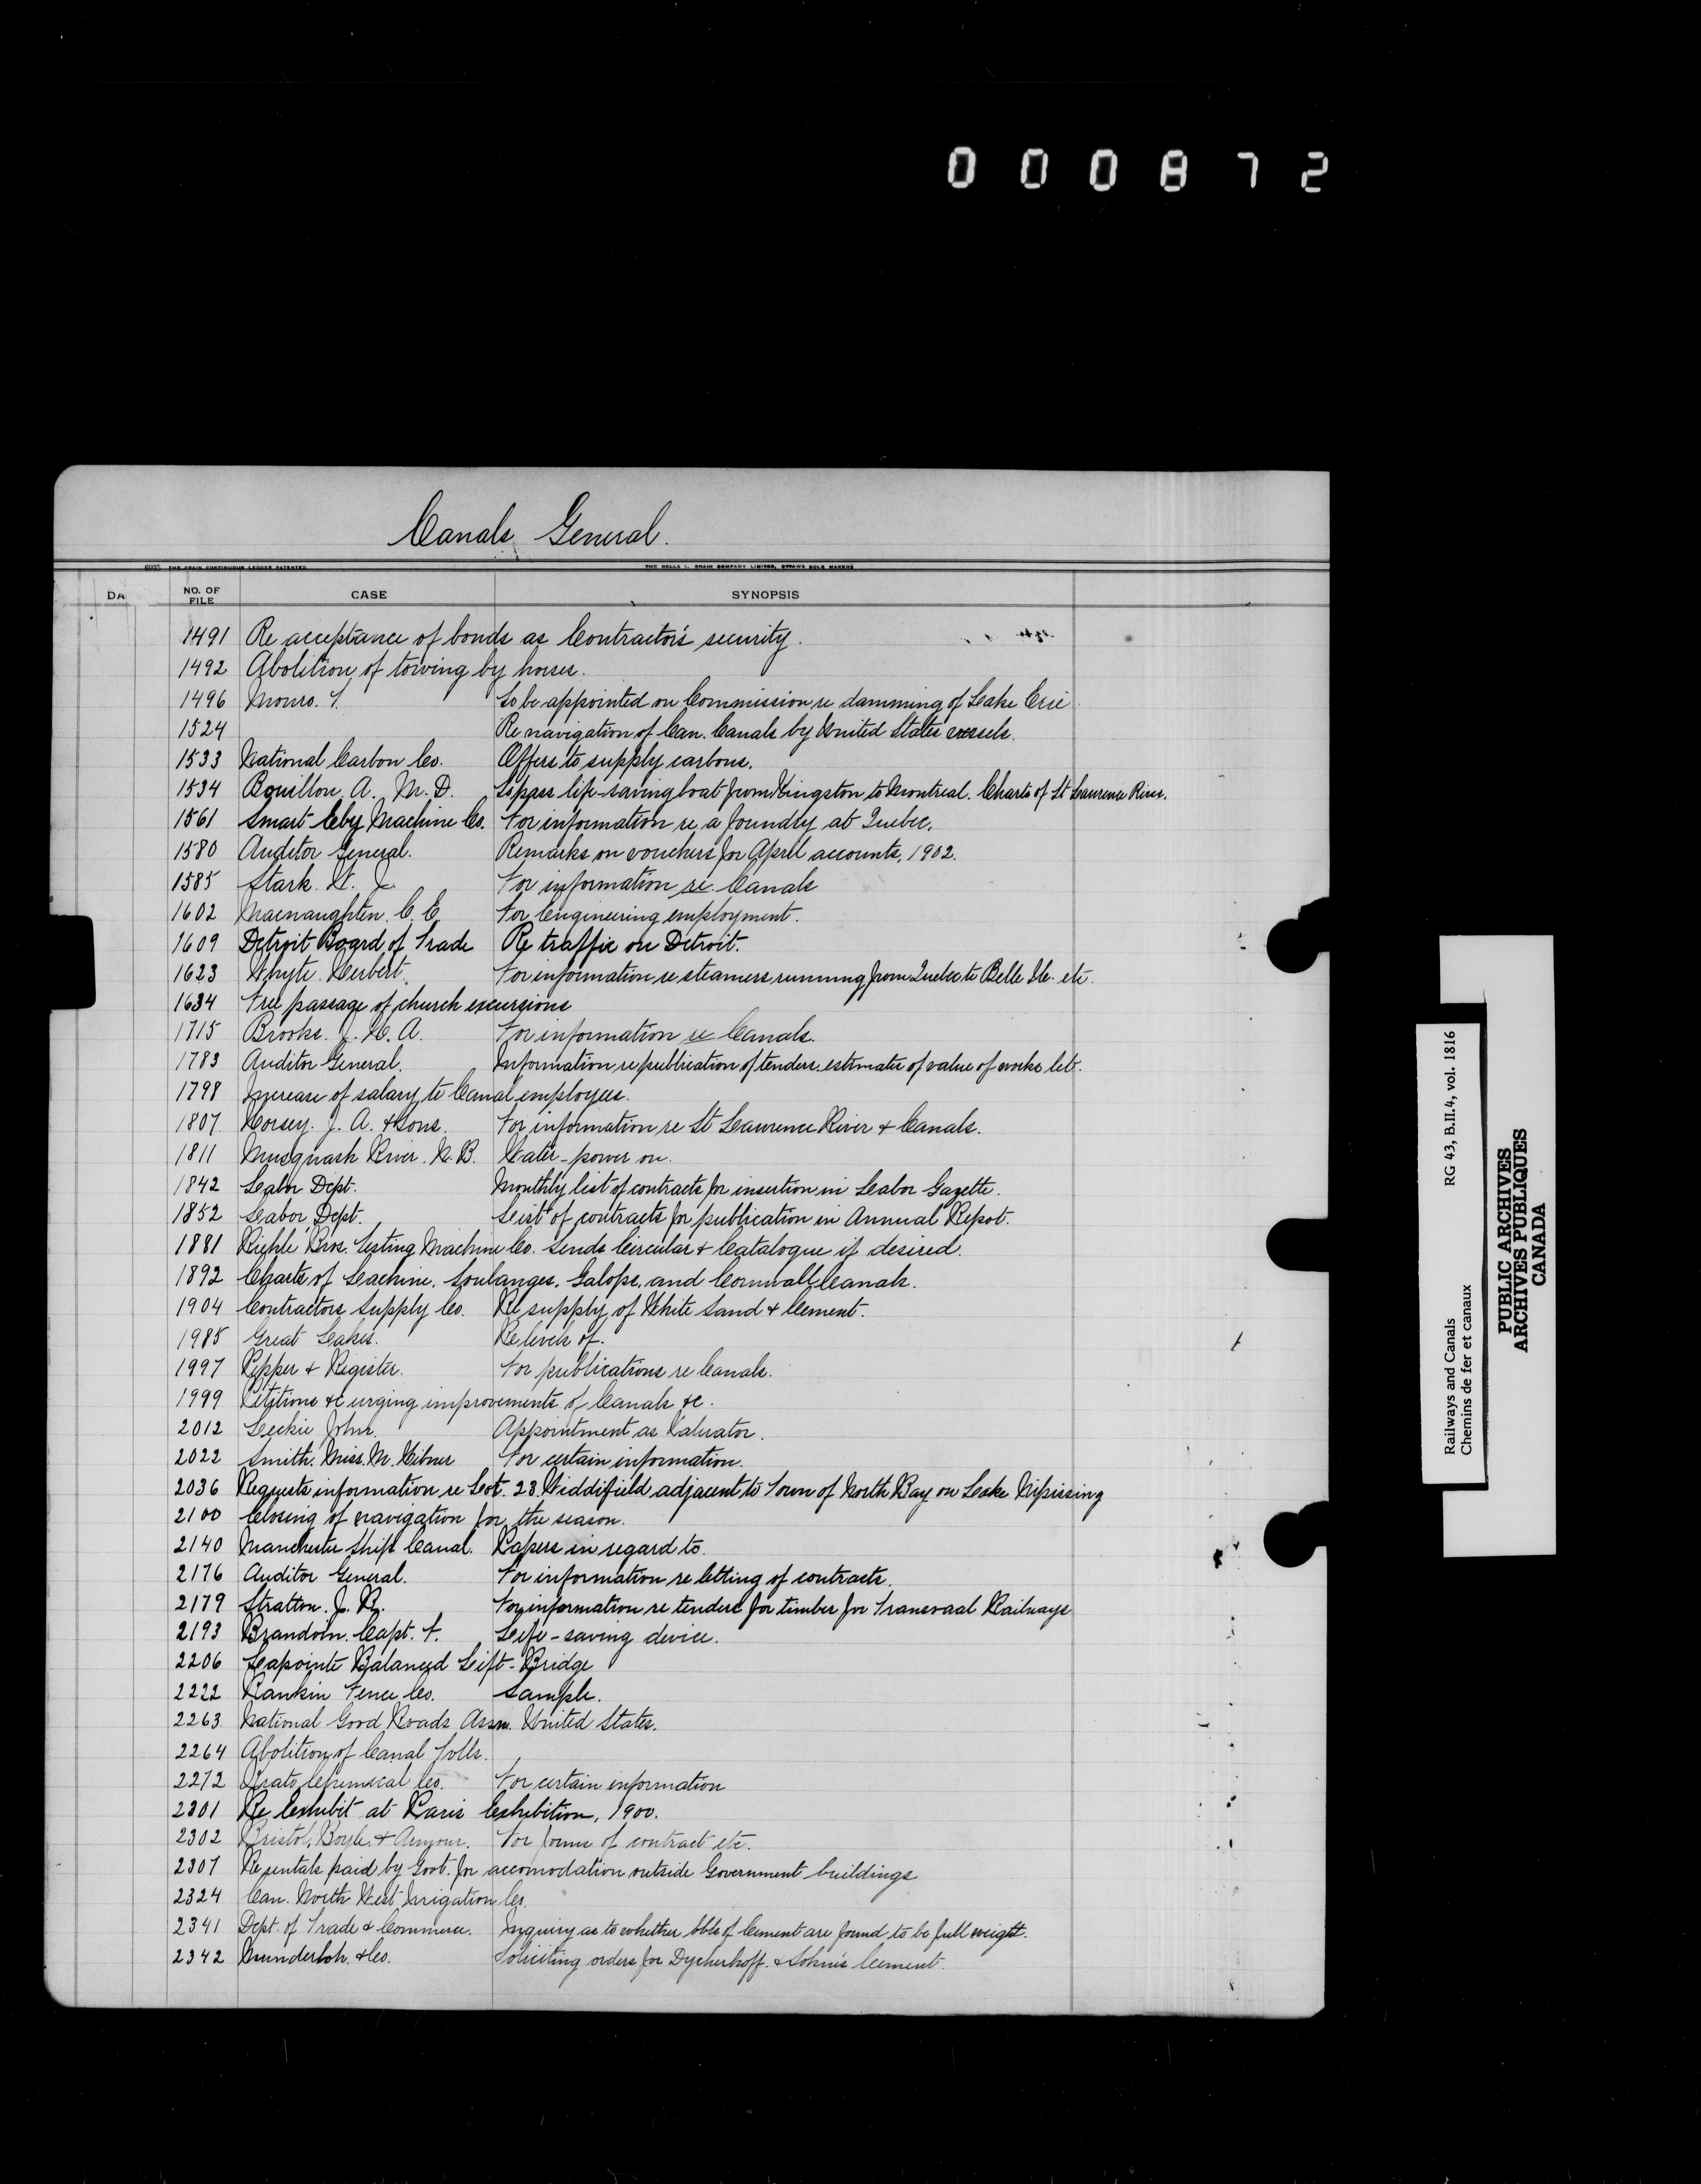 000872
Canals General.
6095 THE CRAIN CONTINUOUS LEDGER PATENTED THE ROLLA L. CRAIN COMPANY LIMITED, OTTAWA SOLE MAKERS
DA NO. OF FILE CASE SYNOPSIS
1491 Re acceptance of bonds as Contractor's security.
1492 Abolition of towing by horses.
1496 Monro. T. To be appointed on Commission re damming of Lake Erie
1524 Re navigation of Can. Canals by United States vessels.
1533 National Carbon Co. Offers to supply carbons.
1534 Bouillon, A. M. D. To pass life-saving boat from Kingston to Montreal. Charts of St Lawrence River.
1561 Smart Eby Machine Co. For information re a foundry at Quebec.
1580 Auditor General. Remarks on vouchers for April accounts, 1902.
1585 Stark. W. J. For information re Canals
1602 Macnaughten. C. E. For Engineering employment.
1609 Detroit Board of Trade Re traffic on Detroit.
1623 Whyte. Herbert. For information re steamers running from Quebec to Belle Ile. etc.
1634 Free passage of church excursions
1715 Brooks. J. H. A. For information re Canals.
1783 Auditor General. Information re publication of tenders. estimates of value of works let.
1798 Increase of salary to Canal employees.
1807 Horsey. J. A. & Sons. For information re St Lawrence River & Canals.
1811 Musquash River. N.B. Water-power on.
1842 Labor Dept. Monthly list of contracts for insertion in Labor Gazette.
1852 Labor Dept. List of contracts for publication in Annual Repot.
1881 Riehle Bros. Testing Machine Co. Sends Circular & Catalogue if desired.
1892 Charts of Lachine, Soulanges, Galops, and Cornwall Canals.
1904 Contractors Supply Co. Re supply of White Sand & Cement.
1985 Great Lakes. Re levels of.
1997 Pepper & Register. For publications re Canals.
1999 Petitions &c urging improvements of Canals &c.
2012 Leckie John. Appointment as Valuator.
2022 Smith. Miss. M. Hibner For certain information.
2036 Requests information re Lot. 23. Widdifield adjacent to Town of North Bay on Lake Nipissing
2100 Closing of navigation for the season.
2140 Manchester Ship Canal. Papers in regard to.
2176 Auditor General. For information re letting of contracts.
2179 Stratton. J. R. For information re tenders for timber for Transvaal Railways
2193 Brandom. Capt. F. Life-saving device.
2206 Lapointe Balanced Lift-Bridge
2222 Rankin Fence Co. Sample.
2263 National Good Roads Assn. United States.
2264 Abolition of Canal Tolls.
2272 Chemical Co. For certain information
2301 Re Exhibit at Paris Exhibition, 1900.
2302 Bristol, Boyle. & Armour. For forms of contract etc.
2307 Re rentals paid by Govt. for accomodation outside Government buildings
2324 Can. North West Irrigation Co.
2341 Dept. of Trade & Commerce. Inquiry as to whether bbls of Cement are found to be full weight.
2342 Munderloh. & Co. Soliciting orders for Dyckerhoff. & Sohn's Cement.
Railways and Canals RG 43, B.II.4, vol. 1816
Chemins de fer et canaux
PUBLIC ARCHIVES
ARCHIVES PUBLIQUES
CANADA